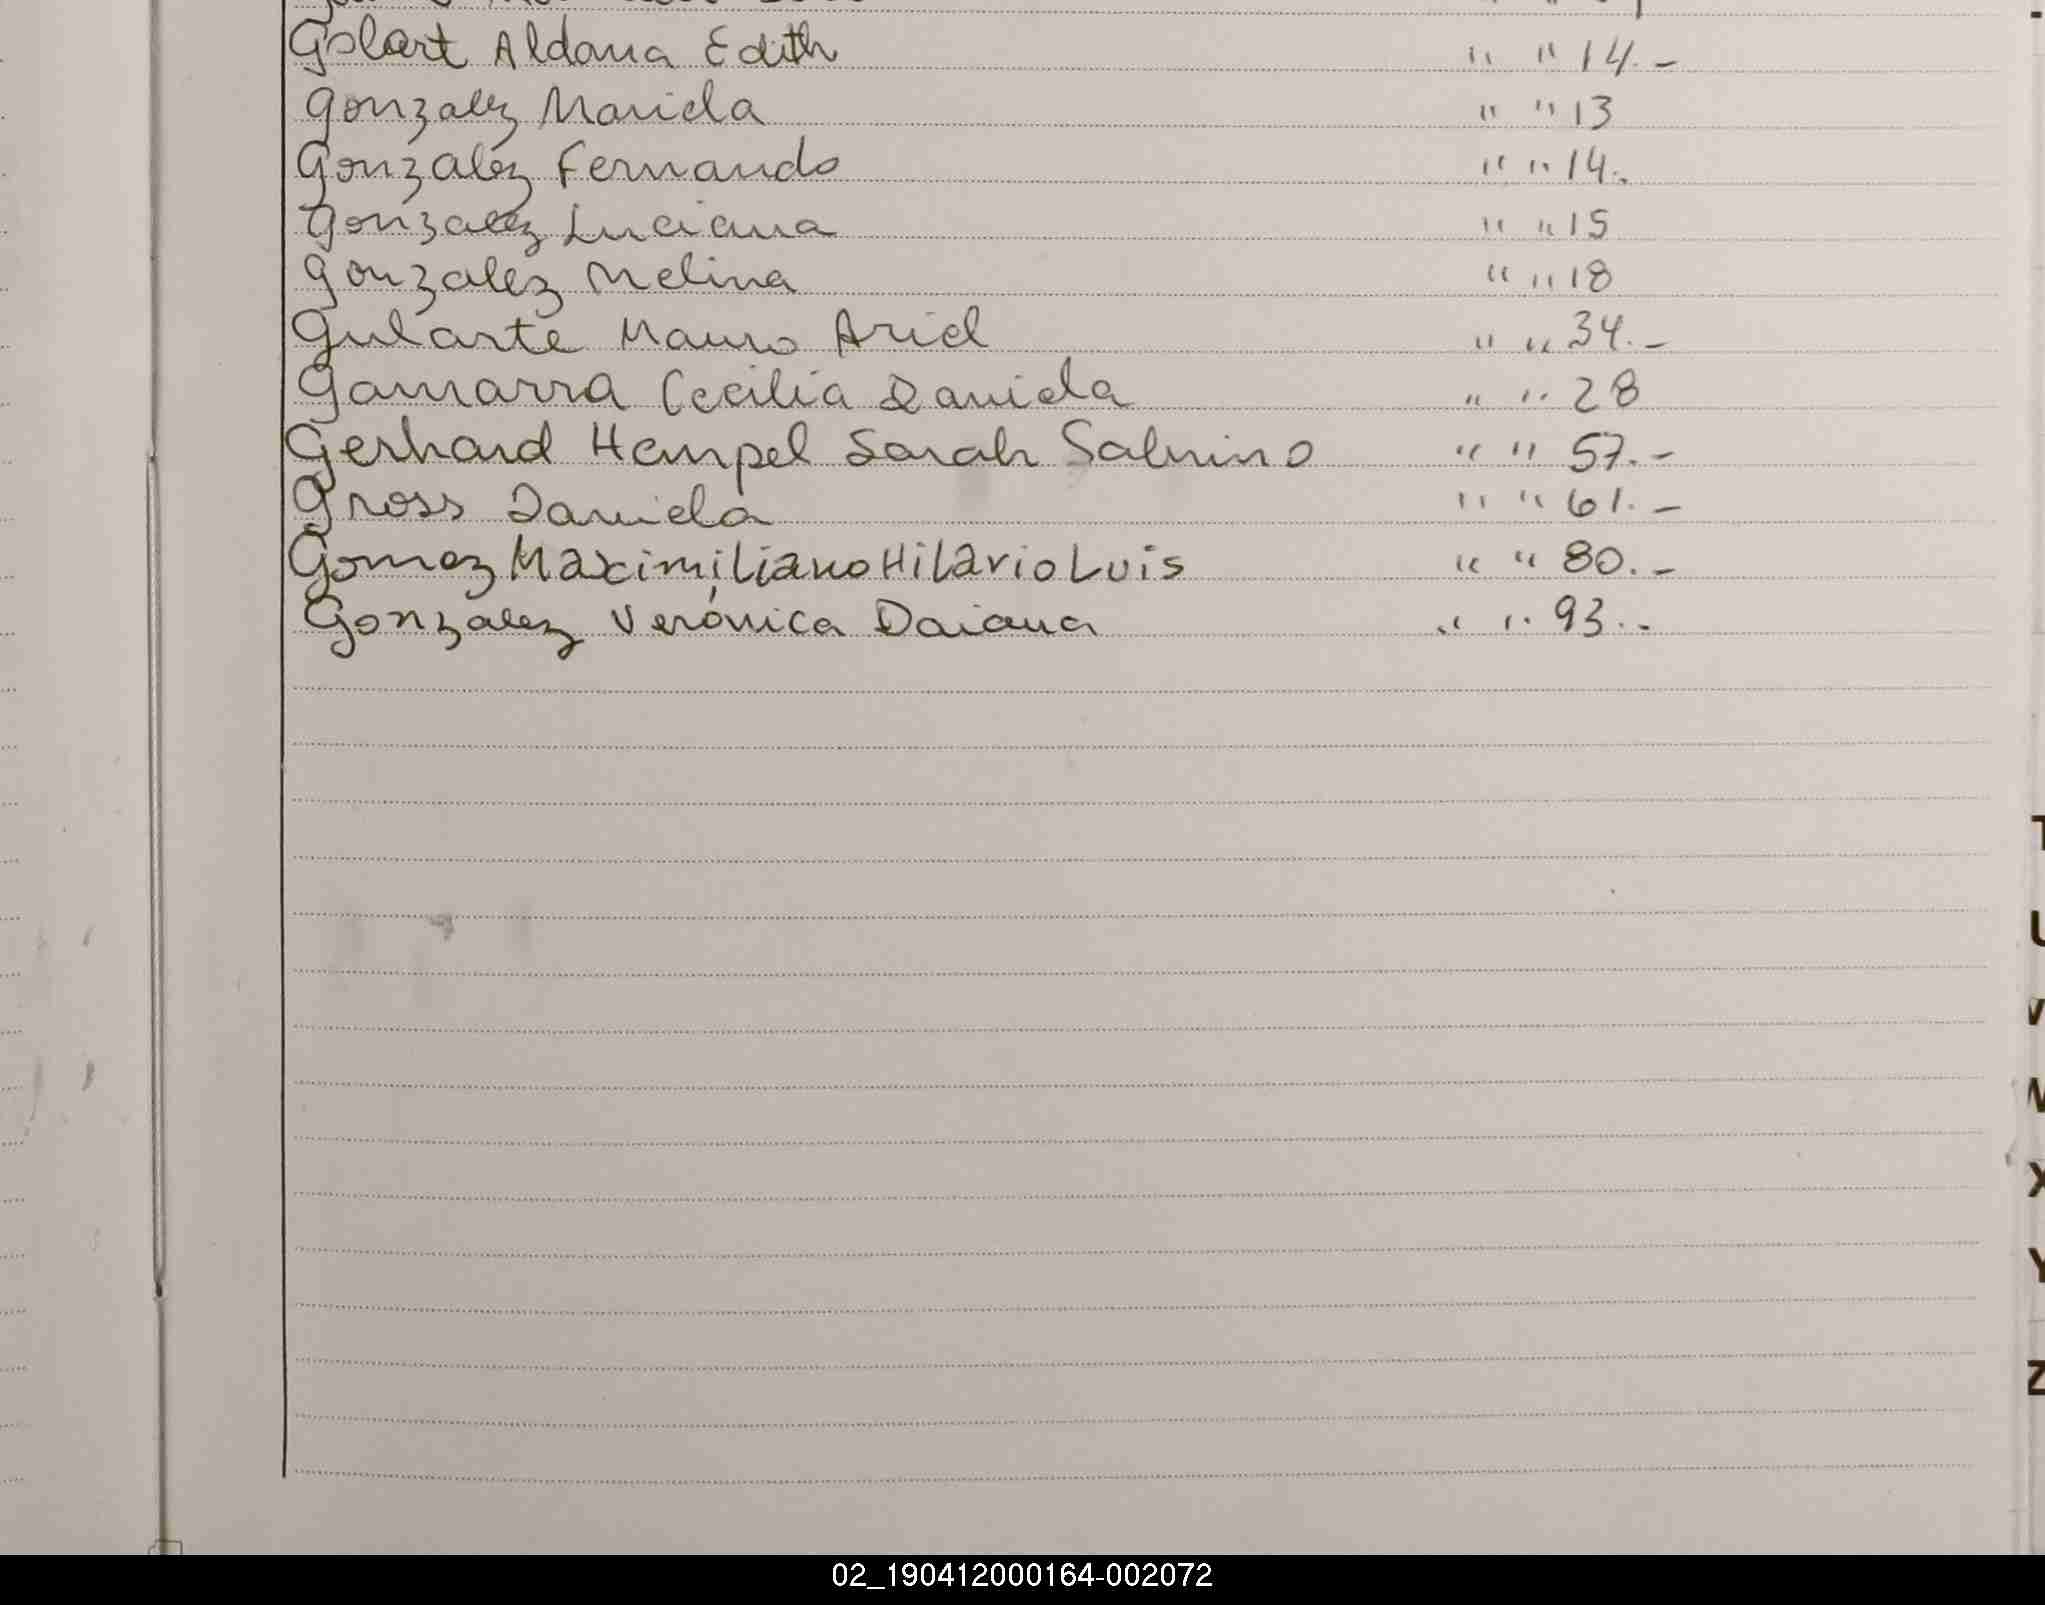 Golart Aldana Edith " " 14.-
Gonzalez Mariela " " 13
Gonzalez Fernando " " 14.
Gonzalez Luciana " " 15
Gonzalez Melina " " 18
Gularte Mauro Ariel " " 34.-
Gamarra Cecilia Daniela " " 28
Gerhard Hempel Sarah Sabrina " " 57.-
Gross Daniela " " 61.-
Gomez Maximiliano Hilario Luis " " 80.-
Gonzalez Verónica Daiana " " 93.-
U
V
W
X
Y
Z
02_190412000164-002072